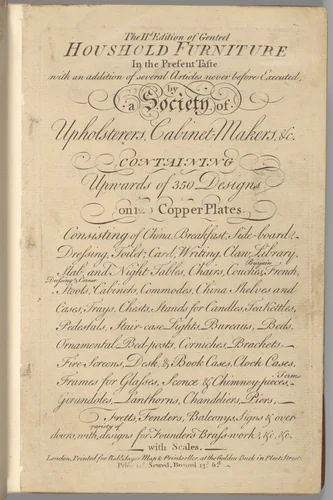 The IId. Edition of Genteel
HOUSHOLD FURNITURE
In the Present Taste
with an addition of several Articles never before Executed,
by
a Society of
Upholsterers, Cabinet-Makers, &c.
CONTAINING
Upwards of 350 Designs
on Copper Plates.
Consisting of China, Breakfast, Side-board,
Dressing, Toilet, Card, Writing, Claw, Library,
Slab, and Night-Tables, Chairs, Couches, French
Dressing & Corner
Stools, Cabinets, Commodes, China Shelves and
Cases, Trays, Chests, Stands for Candles, Tea Kettles,
Pedestals, Stair-case Lights, Bureaus, Beds,
Ornamental Bed-posts, Corniches, Brackets
Fire-Screens, Desk, & Book Cases, Clock-Cases,
Terms
Frames for Glasses, Sconce & Chimney-pieces,
Girandoles, Lanthorns, Chandeliers, Piers,
Fretts, Fenders, Balconys, Signs & over
variety of
doors, with designs for Founders Brass-work, &c. &c.
with Scales.
London, Printed for Robt. Sayer Map & Printseller, at the Golden Buck in Fleet Street.
Price Sewed, Bound 13s. 6d.